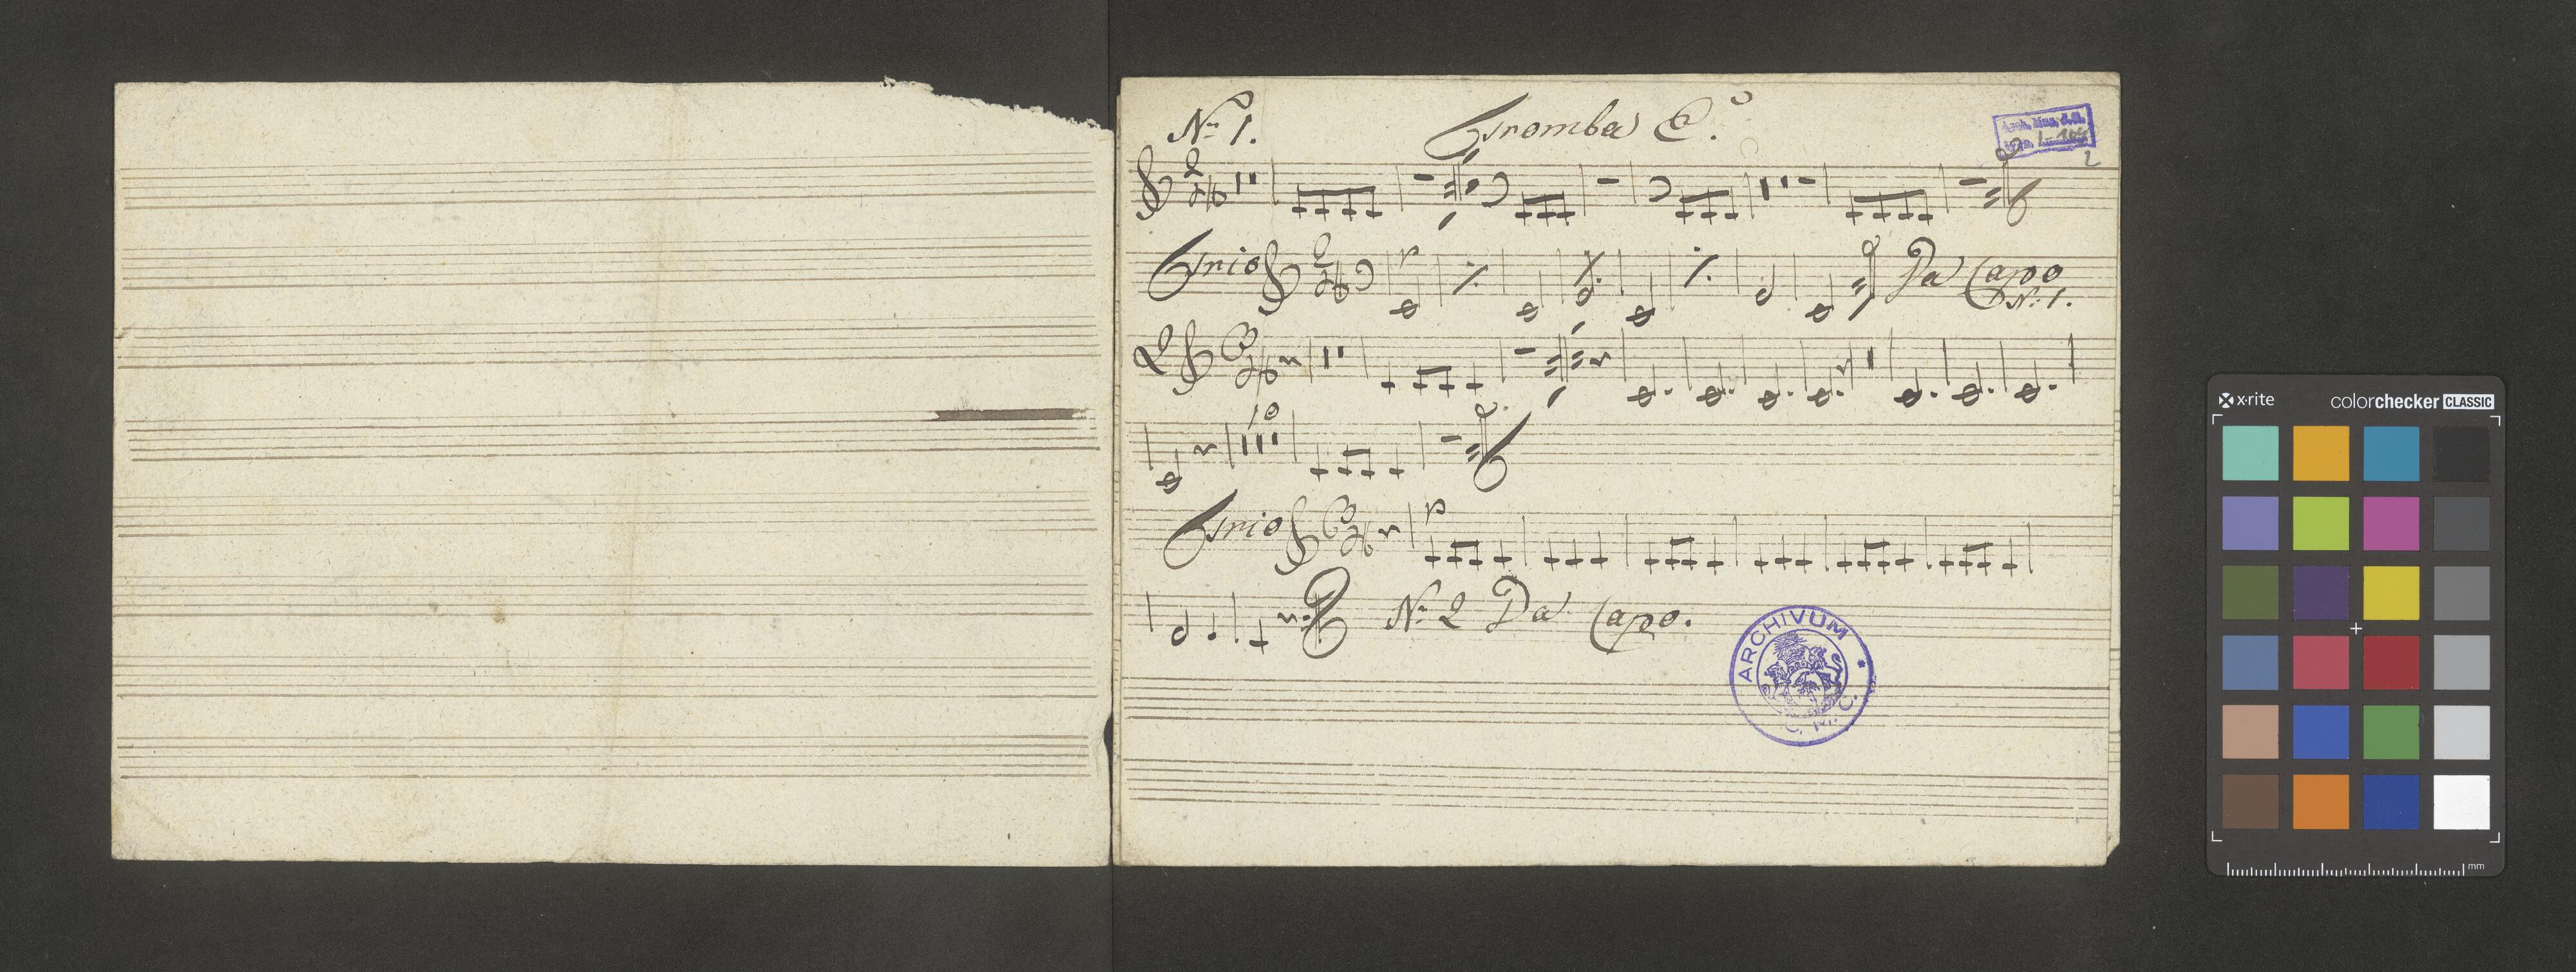 No 1. Tromba C.o
2
Trio Da Capo
No 1.
2
10
Trio p
No 2 Da Capo.
ARCHIVUM
x·rite colorchecker CLASSIC
mm